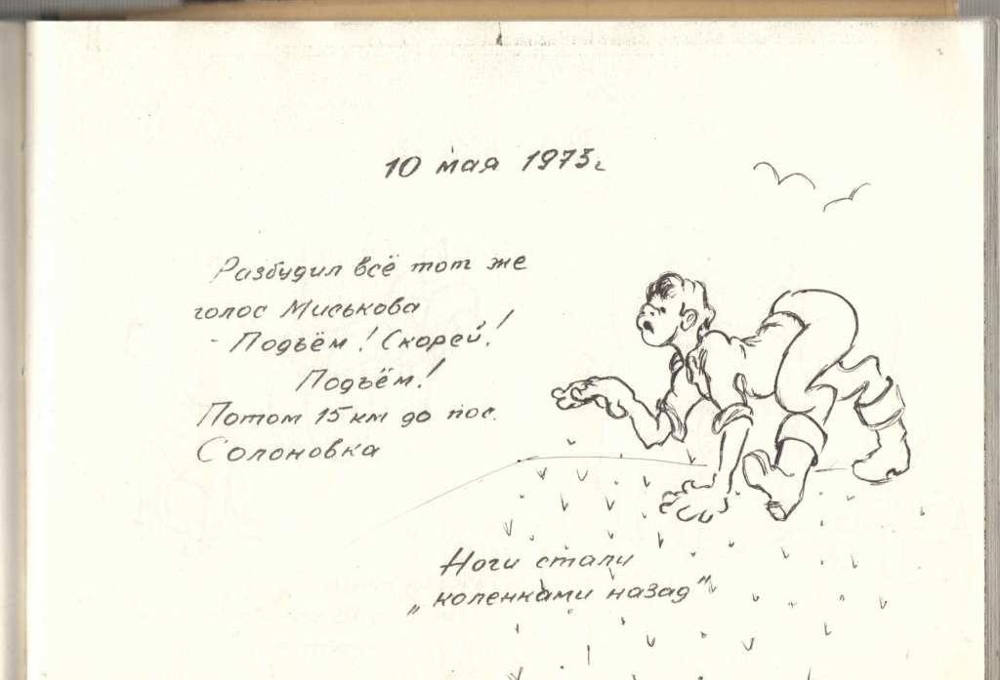 10 мая 1973г
Разбудил всё тот же
голос Миськова
- Подъём! Скорей!
Подъём!
Потом 15 км до пос.
Солоновка
Ноги стали
„коленками назад"